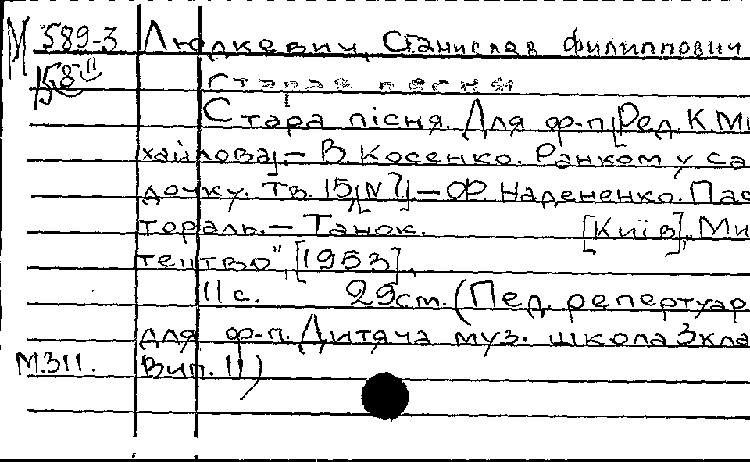 М 589-3 Людкевич, Станислав Филиппович
158 II
Старая песня
Стара пісня. Для ф-п. [Ред. К. Ми
хайлова]. – В. Косенко. Ранком у са
дочку. Тв. 15, [№7]. – Ф. Надененко. Пас
тораль. – Танок. [Київ], „Ми
тецтво", [1953],
11 с. 29 см. (Пед. репертуар
для ф-п. Дитяча муз. школа 3 кла
М.311. Вип. II)